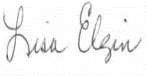 Lisa Elgin